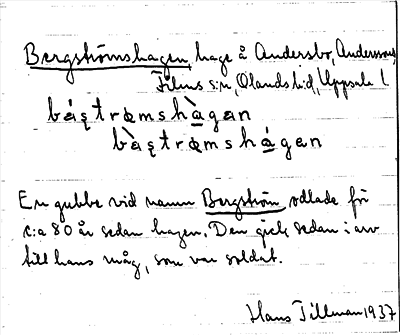 Bergströmshagen, hage å Andersbo, Andersons,
Films s:n, Olands h:d, Uppsala l
bá̀ʂtrœmshàgan
bàʂtrœmshágan
En gubbe vid namn Bergström odlade för
c:a 80 år sedan hagen. Den gick sedan i arv
till hans måg, som var soldat.
Hans Tillman 1937